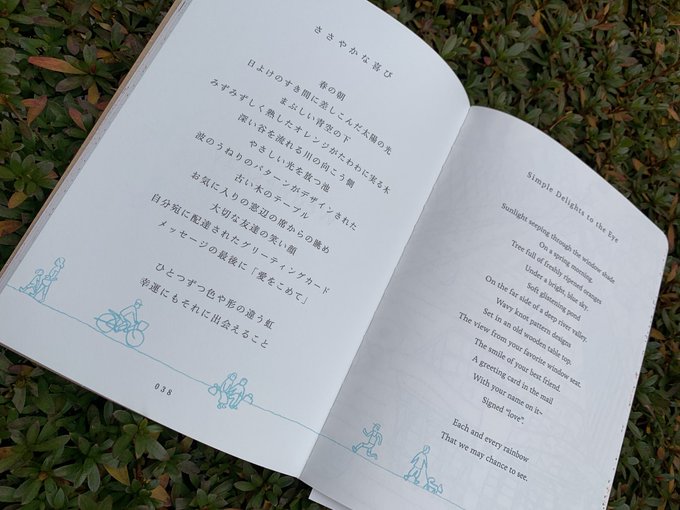 ささやかな喜び
春の朝
日よけのすき間に差しこんだ太陽の光
まぶしい青空の下
みずみずしく熟したオレンジがたわわに実る木
深い谷を流れる川の向こう側
やさしい光を放つ池
波のうねりのパターンがデザインされた
古い木のテーブル
お気に入りの窓辺の席からの眺め
大切な友達の笑い顔
自分宛に配達されたグリーティングカード
メッセージの最後に「愛をこめて」
ひとつずつ色や形の違う虹
幸運にもそれに出会えること
038
Simple Delights to the Eye
Sunlight seeping through the window shade
On a spring morning.
Tree full of freshly ripened oranges
Under a bright, blue sky.
Soft glistening pond
On the far side of a deep river valley.
Wavy knot pattern designs
Set in an old wooden table top.
The view from your favorite window seat.
The smile of your best friend.
A greeting card in the mail
With your name on it–
Signed “love”.
Each and every rainbow
That we may chance to see.